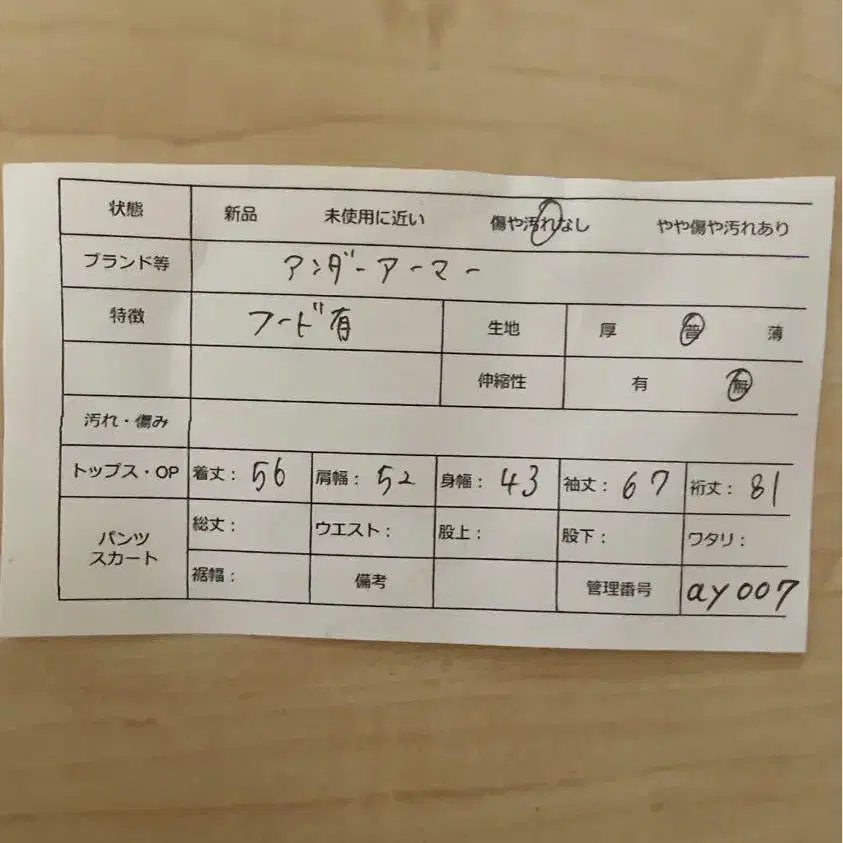 状態 新品 未使用に近い 傷や汚れなし やや傷や汚れあり
ブランド等 アンダーアーマー
特徴 フード有 生地 厚 普 薄
伸縮性 有 無
汚れ・傷み
トップス・OP 着丈: 56 肩幅: 52 身幅: 43 袖丈: 67 裄丈: 81
パンツ スカート 総丈: ウエスト: 股上: 股下: ワタリ:
裾幅: 備考 管理番号 ay007